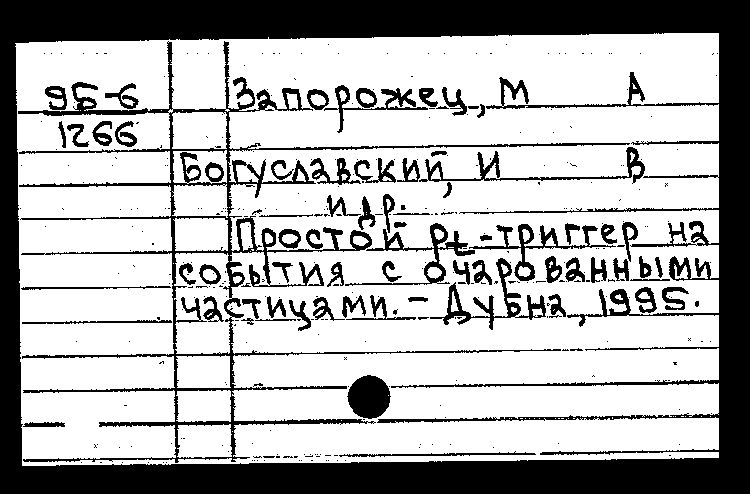 95-6 Запорожец, М А
1266
Богуславский, И В
и др.
Простой pt-триггер на
события с очарованными
частицами. - Дубна, 1995.